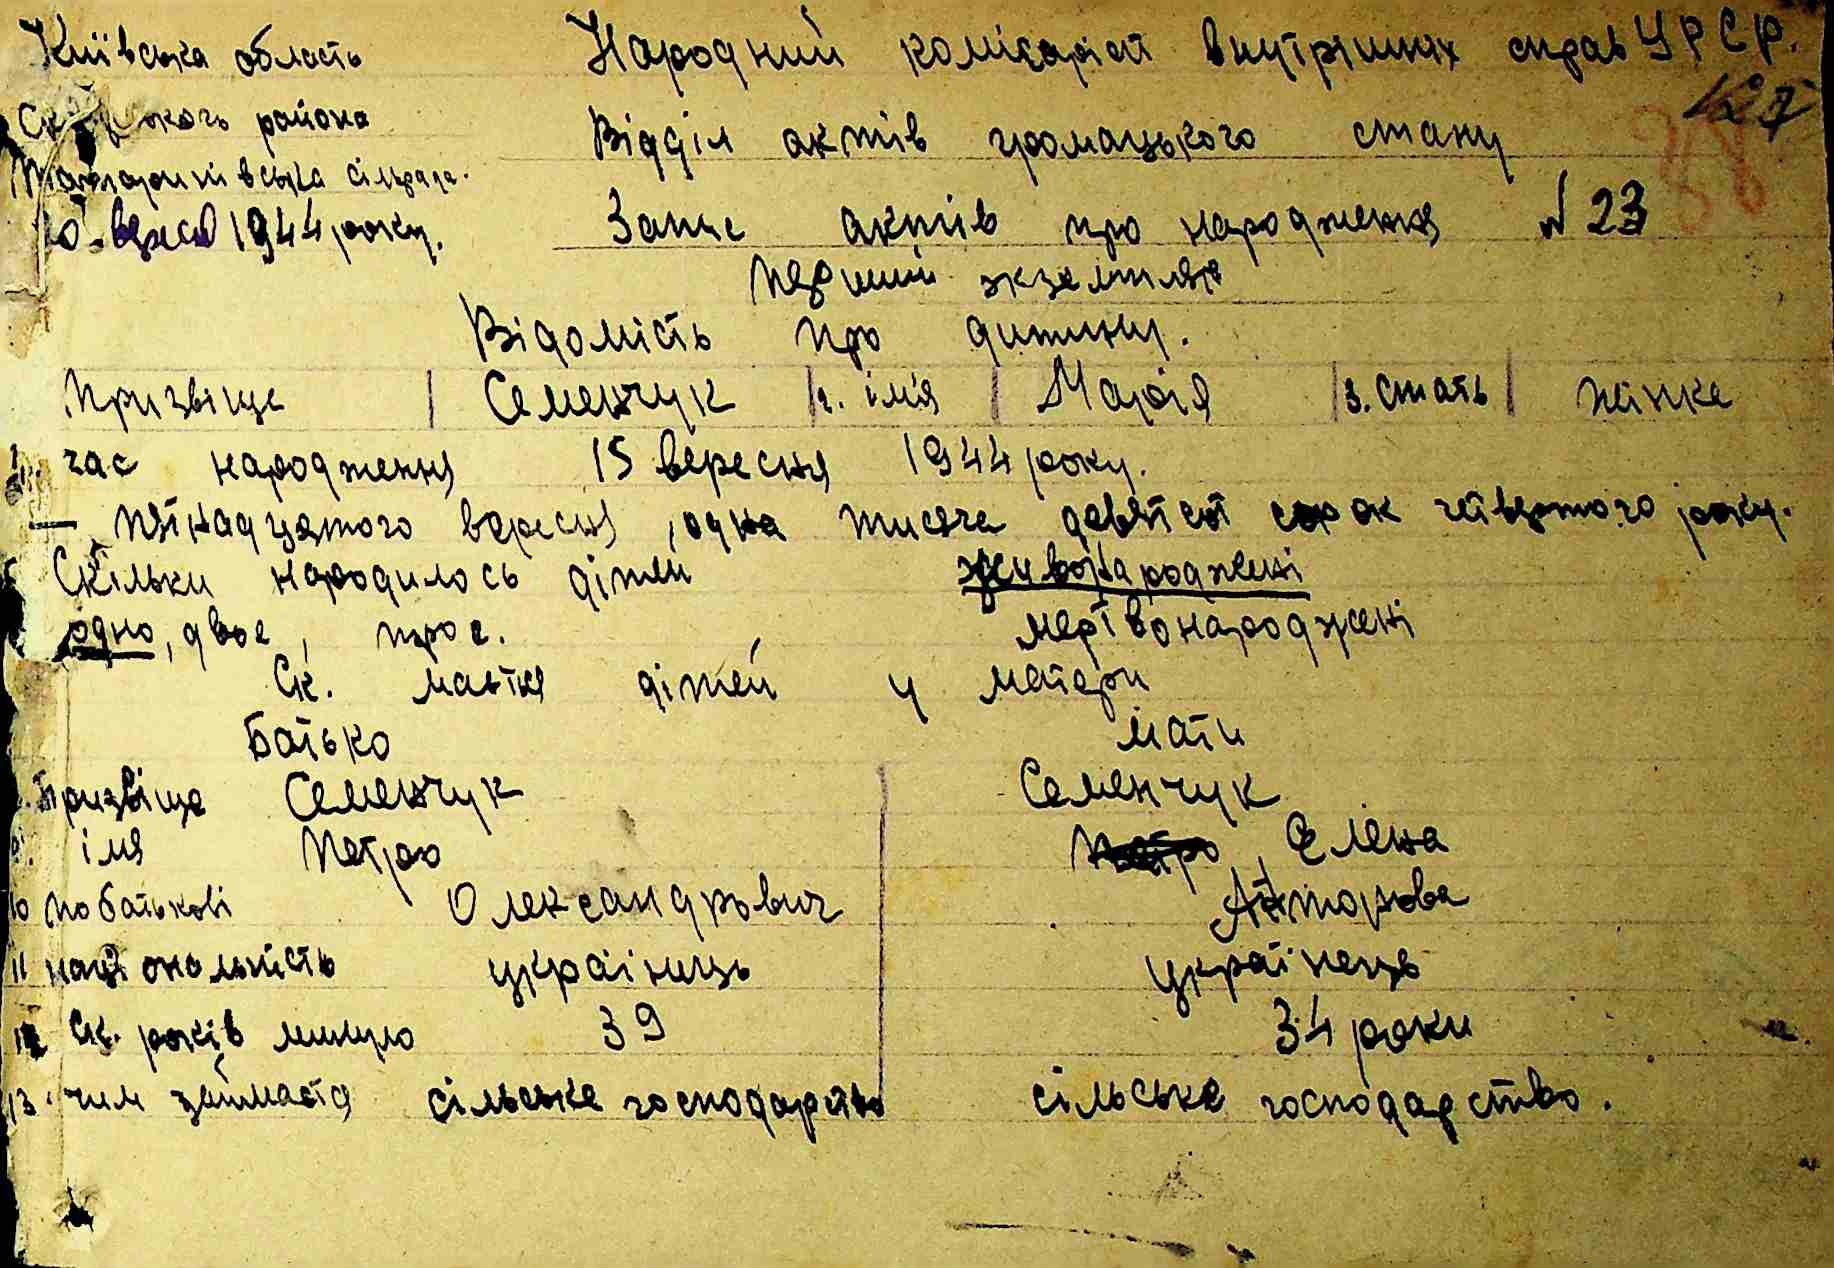 Київська область Народний комісаріат внутрішніх справ У Р С Р.
района Відділ актів громацького стану
сільрада.
1944 року. Запис актів про народження № 23
перший экземпляр
Відомість про дитину.
Призвіще | Семенчук | 2. імя | Марія | 3. стать | жінка
час народження 15 вересня 1944 року.
— пятнадцятого вересня, одна тисяча девятсот сорок четвертого року.
Скільки народилось дітей живонароджені
одно, двое, троє. мертвонароджені
Ск. мається дітей у матери
Батько мати
Призвіще Семенчук Семенчук
імя Петро Петро, Єлена
10 по батькові Олександрович
11 національність украінець украінець
12 Ск. років минуло 39 34 роки
13. чим займаєтя сільське господарство сільське господарство.